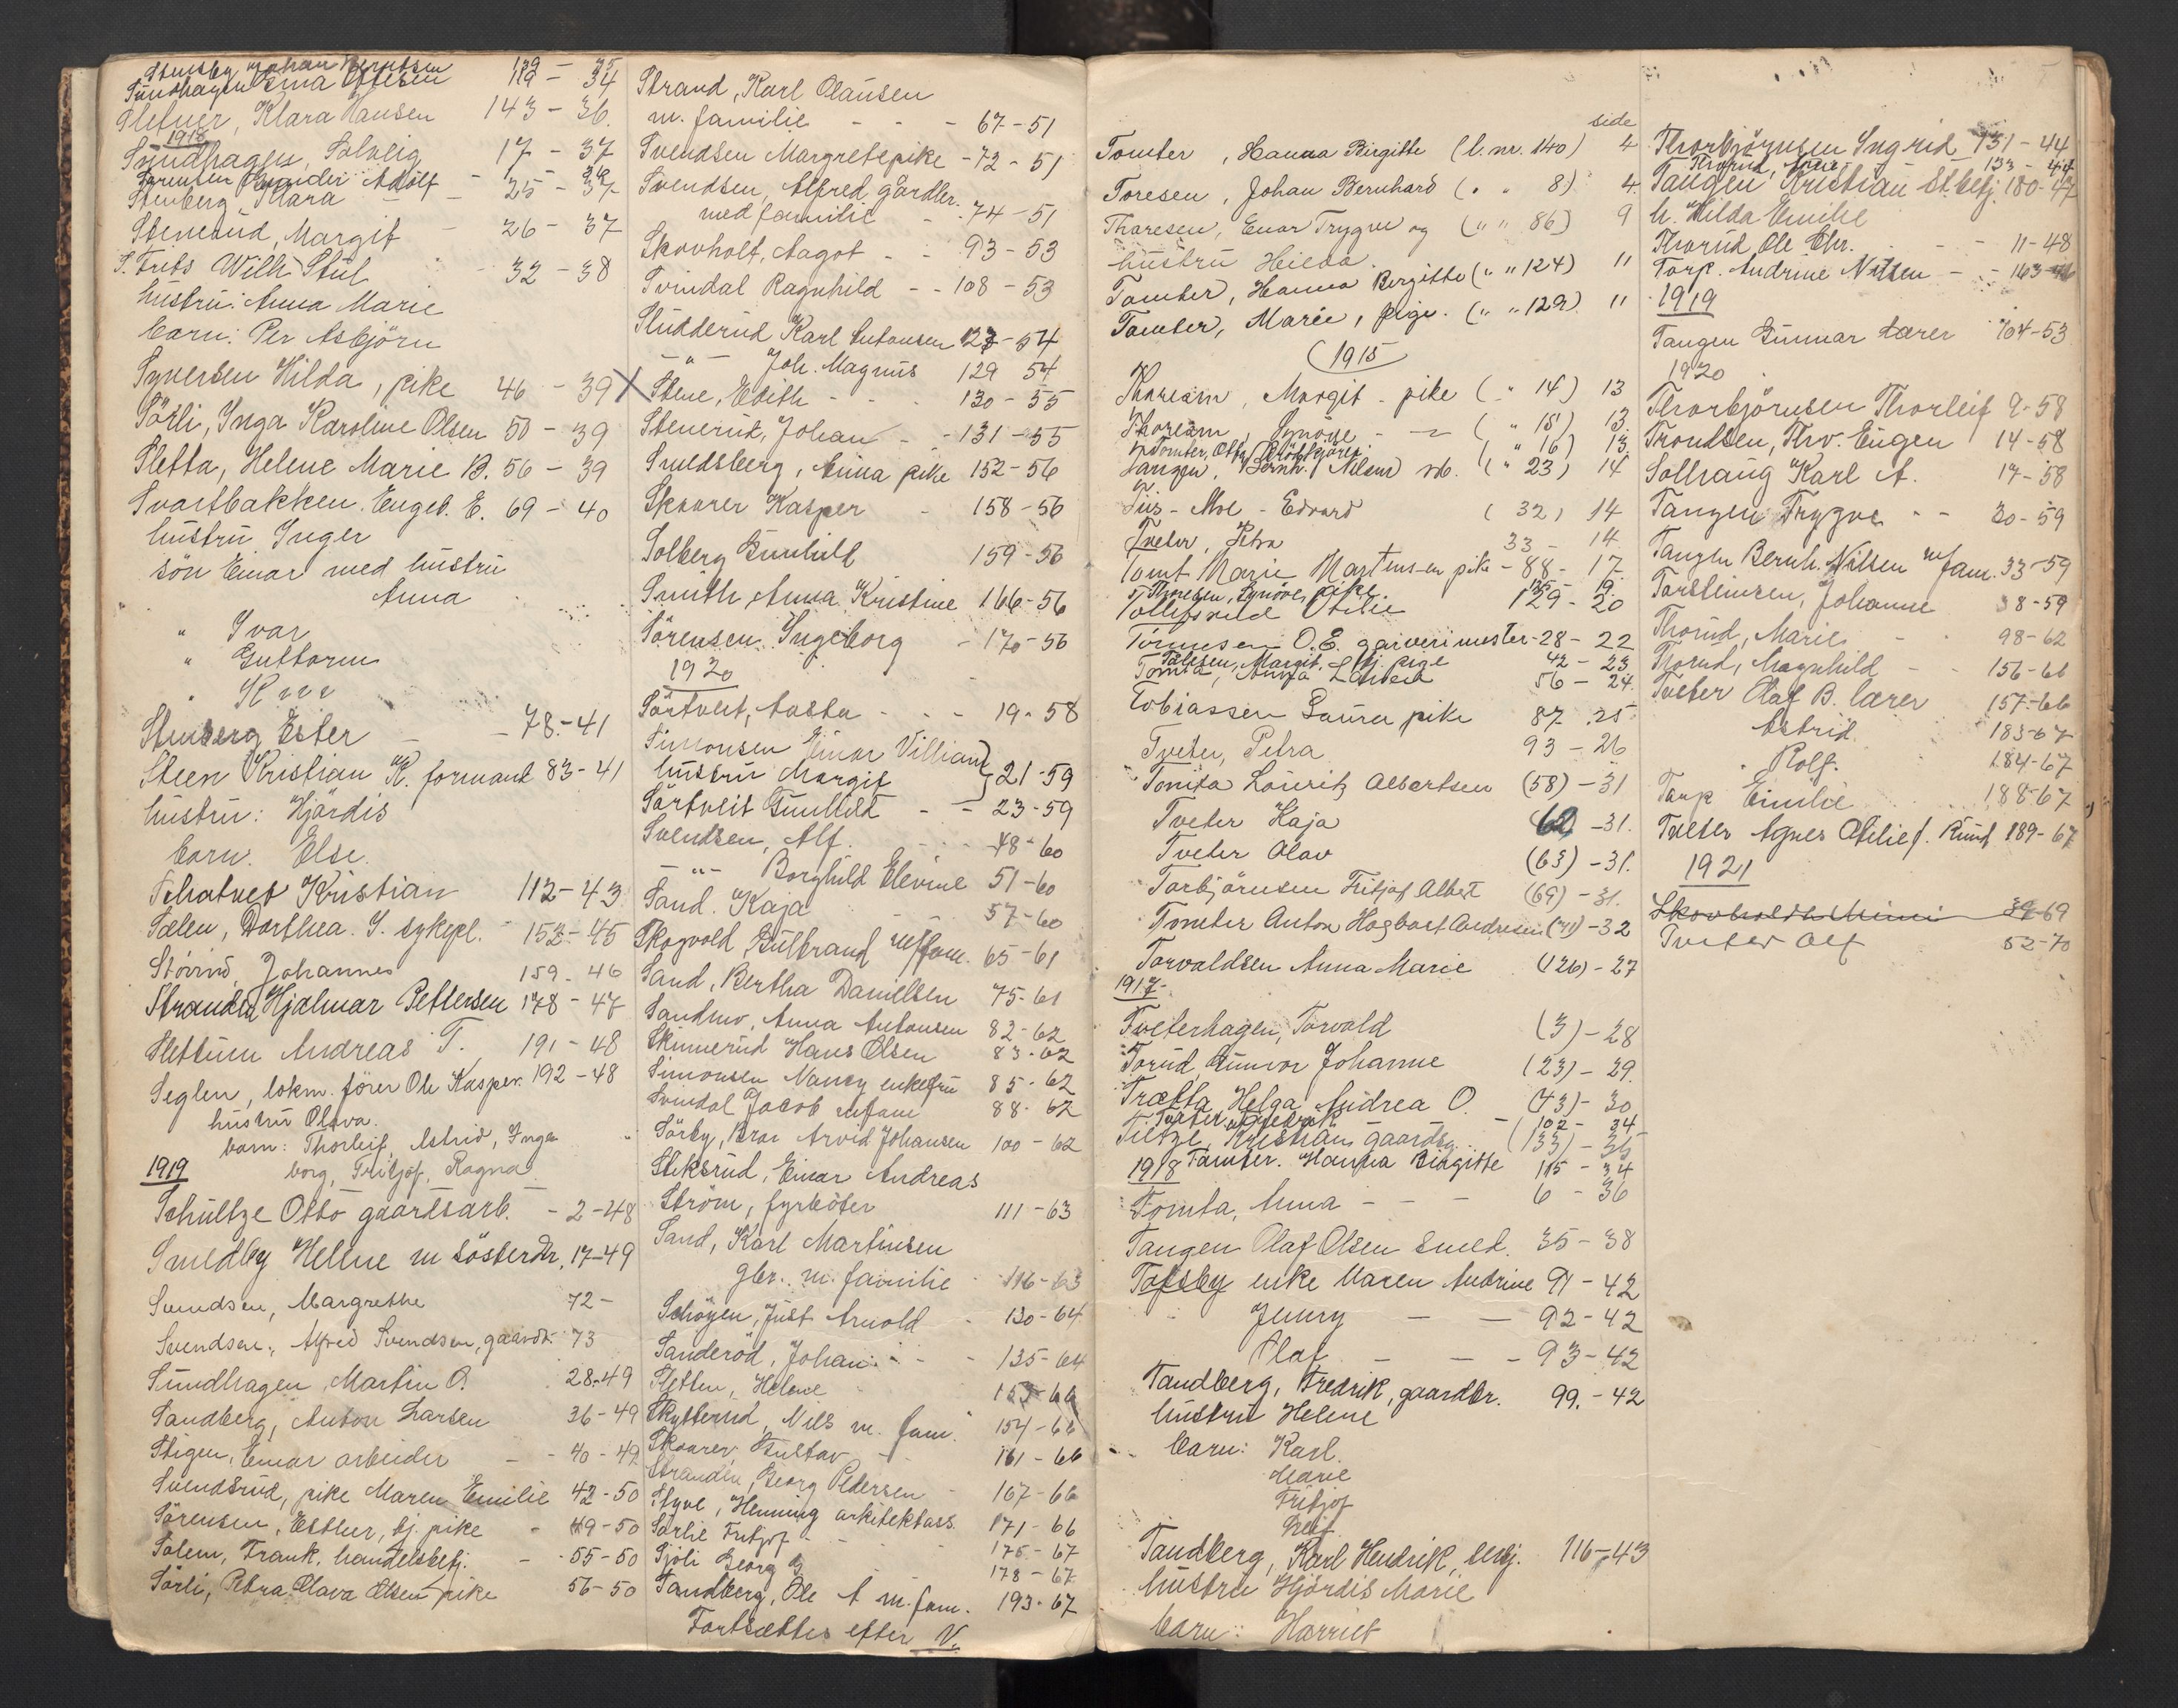 Stensby, Johan Berntsen 139 - 35
Sundhagen Erna Ottesen 119 - 34
Slefner, Klara Hansen 143 - 36.
1918
Sundhagen, Solveig 17 - 37
Sørensen Adolf
Stenberg, Klara 25 - 37
Stenerud, Margit - 26 - 37
S. Frits Wilh. Stul 32 - 38
hustru: Anna Marie
barn: Per Asbjörn
Syversen Hilda, pike 46 - 39
Sörli, Inga Karoline Olsen 50 - 39
Sletta, Helene Marie B. 56 - 39
Svartbakken. Engeb. E. 69 - 40
hustru Inger
sön Einar med hustru
Anna
" Ivar
" Guttorm
Stenberg Ester - - 78 - 41
Steen Kristian K. formand 83 - 41
hustru: Hjördis
barn. Else.
Kristian 112 - 43
Sælen, Dorthea. S. sykepl. - 152 - 45
Johannes 159 - 46
Stranden Hjalmar Pettersen 178 - 47
Slettum Andreas T. 191 - 48
Seglen, lokm. förer Ole Kasper. 192 - 48
hustru Olava.
barn: Thorleif, Astrid, Inge-
borg, Fritjof, Ragna
1919
Schultze Otto gaardsarb. - 2 - 48
Smedby Hellne m sösterdtr, 17 - 49
Svendsen, Margrethe 72 -
Svendsen, Alfred Svendsen, gaardbr. 73
Sundhagen, Martin O. 28 - 49
Sandberg, Anton Larsen 36 - 49
Stigen, Einar arbeider - - 40 - 49
Svendsrud, pike Maren Emilie 42 - 50
Sörensen, Esther, tj. pike - 49 - 50
Solem, Frank, handelsbetj. - - 55 - 50
Sörli, Petra Olava Olsen pike 56 - 50
Strand, Karl Olausen
m. familie - - - 67 - 51
Svendsen Margrete pike - 72 - 51
Svendsen, Alfred, gårdbr.
med familie - 74 - 51
Skovholt, Aagot - - 93 - 53
Svindal Ragnhild - - 108 - 53
Studderud Karl Antonsen 127 - 54
- " - Joh. Magnus 129 54
X Stene, Edith - - - 130 - 55
Stenerud, Johan - - 131 - 55
Smedsberg, Anna pike 152 - 56
Skaarer Kasper - 158 - 56
Solberg Gunhild 159 - 56
Smith, Anna Kristine 166 - 56
Sörensen Ingeborg - 170 - 56
1920
Sörtveit, Aasta - - - 19 - 58
Simonsen Einar Villiam
hustru Margit } 21 - 59
Sörtveit Gunhild - - 23 - 59
Svendsen, Alf. - - - 48 - 60
- " - Borghild Elevine 51 - 60
Sand. Kaja 57 - 60
Skogvold, Gulbrand m/fam. 65 - 61
Sand, Bertha Danielsen 75 - 61
Sandmo, Anna Antonsen 82 - 62
Skinnerud Hans Olsen 83 - 62
Simonsen Nancy enkefru 85 - 62
Svendal Jacob m fam 88 - 62
Sörby, Brar Arvid Johansen 100 - 62
Stiksrud, Einar Andreas
Ström, fyrböter 111 - 63
Sand, Karl Martinsen
gbr. m. familie - 116 - 63
Schöyen, Just Arnold - 130 - 64
Sanderöd, Johan - - - 135 - 64
Sletten, Helene 153 - 66
Skytterud, Nils m. fam. 154 - 66
Skaarer Gustav - - 161 - 66
Stranden, Georg Pedersen - 167 - 66
Styve, Henning arkitektass. 171 - 66
Sörlie Fritjof - - - 176 - 67
Sjöli Georg G 178 - 67
Sandberg, Ole A m. fam. 193 - 67
Fortsættes efter V.
side
Tomter, Hanna Birgitte (l. nr. 140) 4
Toresen, Johan Bernhard ( " " 8) 4
Thoresen, Enar Trygve og ( " " 86) 9
hustru Hilda.
Tomter, Hanna Birgitte ( " " 124) 11
Tomter, Marie, pige. ( " " 129) 11
(1915)
Thoream, Margit - pike ( " 14) 13
Thoream, Synöve - - ( " 15) 13.
Tomter, Otto ( " 16) 13.
Tangen, Bernh. Nilsen ( " 23) 14
Tiis - Moe - Edvard ( 32) 14
Tveter, Petra 33 - 14
Tomt Marie Martinsen pike - 88 - 17
Thoresen, Synöve, pike 125 - 19.
Tollefsrud Otilie 129 - 20
Tönnesen O. E. garverimester - 28 - 22
Margit, tj. pige 42 - 23
Tomta, Anna 56 - 24.
Tobiassen Laura pike 87 . 25
Tveter, Petra 93 - 26
Tomta Lauritz Albertsen (58) - 31
Tveter Kaja 62 - 31.
Tveter Olav (63) - 31.
Torbjörnsen Fritjof Albert (69) - 31.
Tomter Anton Hagbart Andresen (71) - 32
Torvaldsen Anna Marie (126) - 27
1917
Tveterhagen, Torvald (3) - 28
Torud, Gunvor Johanne (23) - 29.
Trætta, Helga Andrea O. (73) - 30
Tveter - (102 - 34
Tietze, Kristian gaardsg. - (133) - 35
1918 Tomter. Hanna Birgitte 115 - 34
Tomta, Anna - - - 6 - 36
Tangen Olaf Olsen smed. 35 - 38
Tofsby enke Maren Andrine 91 - 42
" Jenny - - 92 - 42
Olaf - - - 93 - 42
Tandberg, Fredrik, gaardbr. 99. - 42
hustru Helene
barn: Karl.
Marie
Fritjof
Leif
Tandberg, Karl Hendrik, betj. 116 - 43
hustru Hjördis Marie
barn: Harriet
Thorbjörnsen Ingrid 131 - 44
Thorud, Marie 133 - 44
Tangen Kristian St.betj. 180 - 47
h. Hilda Emilie
Thorud Ole Chr. - - - 11 - 48
Torp. Andrine Nilsen - - 163 - 46
1919
Tangen Gunnar Lærer 104 - 53
1920
Thorbjörnsen Thorleif 9 - 58
Trondsen, Thv. Eugen 14 - 58
Solhaug Karl A. 17 - 58
Tangen Trygve - - 30 - 59
Tangen Bernh. Nilsen m/fam. 33 - 59
Torsteinsen, Johanne 38 - 59
Thorud, Marie - - 98 - 62
Thorud, Magnhild - - 156 - 66
Tveter Olaf B. lærer 157 - 66
" Astrid 183 - 67
" Rolf. 184 - 67
Torp Emilie 188 - 67
Tveter Agnes Otilie f. Rund 189 - 67
1921
Skovholdt Mimi 39 - 69
Tveter Alf 52 - 70